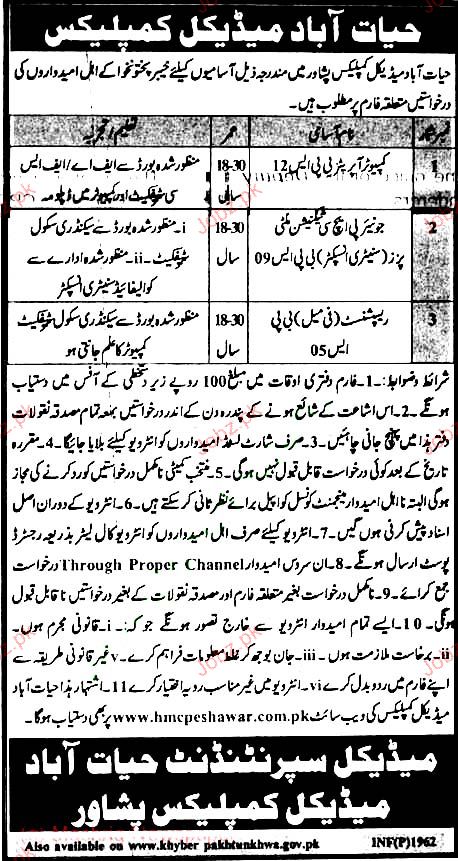 حیات آباد میڈیکل کمپلیکس
حیات آباد میڈیکل کمپلیکس پشاور میں مندرجہ ذیل آسامیوں کیلئے خیبر پختونخوا کے اہل امیدواروں کی
درخواستیں متعلقہ فارم پر مطلوب ہیں۔
نمبر شمار نام آسامی عمر تعلیم / تجربہ
1 کمپیوٹر آپریٹر بی پی ایس 12 18-30 منظور شدہ بورڈ سے ایف اے / ایف ایس
سال سی سرٹیفکیٹ اور کمپیوٹر میں ڈپلومہ
2 جونیئر پی ایچ سی ٹیکنیشن ملٹی 18-30 i۔ منظور شدہ بورڈ سے سیکنڈری سکول
پرپز (سنیٹری انسپکٹر) بی پی ایس 09 سال سرٹیفکیٹ۔ ii۔ منظور شدہ ادارے سے
کوالیفائیڈ سنیٹری انسپکٹر
3 ریسپشنسٹ (فی میل) بی پی 18-30 منظور شدہ بورڈ سے سیکنڈری سکول سرٹیفکیٹ
ایس 05 سال کمپیوٹر کا علم جانتی ہو
شرائط و ضوابط:۔ 1۔ فارم دفتری اوقات میں مبلغ 100 روپے زیر دستخطی کے آفس میں دستیاب
ہونگے۔ 2۔ اس اشاعت کے شائع ہونے کے پندرہ دن کے اندر درخواستیں بمعہ تمام مصدقہ نقولات
دفتر ہذا میں پہنچ جانی چاہئیں۔ 3۔ صرف شارٹ لسٹڈ امیدواروں کو انٹرویو کیلئے بلایا جائیگا۔ 4۔ مقررہ
تاریخ کے بعد کوئی درخواست قابل قبول نہیں ہوگی۔ 5۔ منتخب کمیٹی نامکمل درخواستیں کو رد کرنے کی مجاز
ہوگی البتہ نا اہل امیدوار مینجمنٹ کونسل کو اپیل برائے نظر ثانی کر سکتے ہیں۔ 6۔ انٹرویو کے دوران اصل
اسناد پیش کرنی ہوں گیں۔ 7۔ انٹرویو کیلئے صرف اہل امیدواروں کو انٹرویو کال لیٹر بذریعہ رجسٹرڈ
پوسٹ ارسال ہونگے۔ 8۔ ان سروس امیدوار Through Proper Channel درخواست
جمع کرائے۔ 9۔ نامکمل درخواست بغیر متعلقہ فارم اور مصدقہ نقولات کے بغیر درخواستیں نا قابل قبول
ہوگی۔ 10۔ ایسے تمام امیدوار انٹرویو سے خارج تصور ہونگے جو کہ:۔ i۔ قانونی مجرم ہوں۔
ii۔ برخاست ملازمت ہوں۔ iii۔ جان بوجھ کر غلط معلومات فراہم کرے۔ v۔ غیر قانونی طریقہ سے
اپنے فارم میں ردو بدل کرے vi۔ انٹرویو میں غیر مناسب رویہ اختیار کرے 11۔ اشتہار ہذا حیات آباد
میڈیکل کمپلیکس کی ویب سائٹ www.hmcpeshawar.com.pk پر بھی دستیاب ہوگا۔
میڈیکل سپرنٹنڈنٹ حیات آباد
میڈیکل کمپلیکس پشاور
Also available on www.khyber pakhtunkhwa.gov.pk INF(P)1962